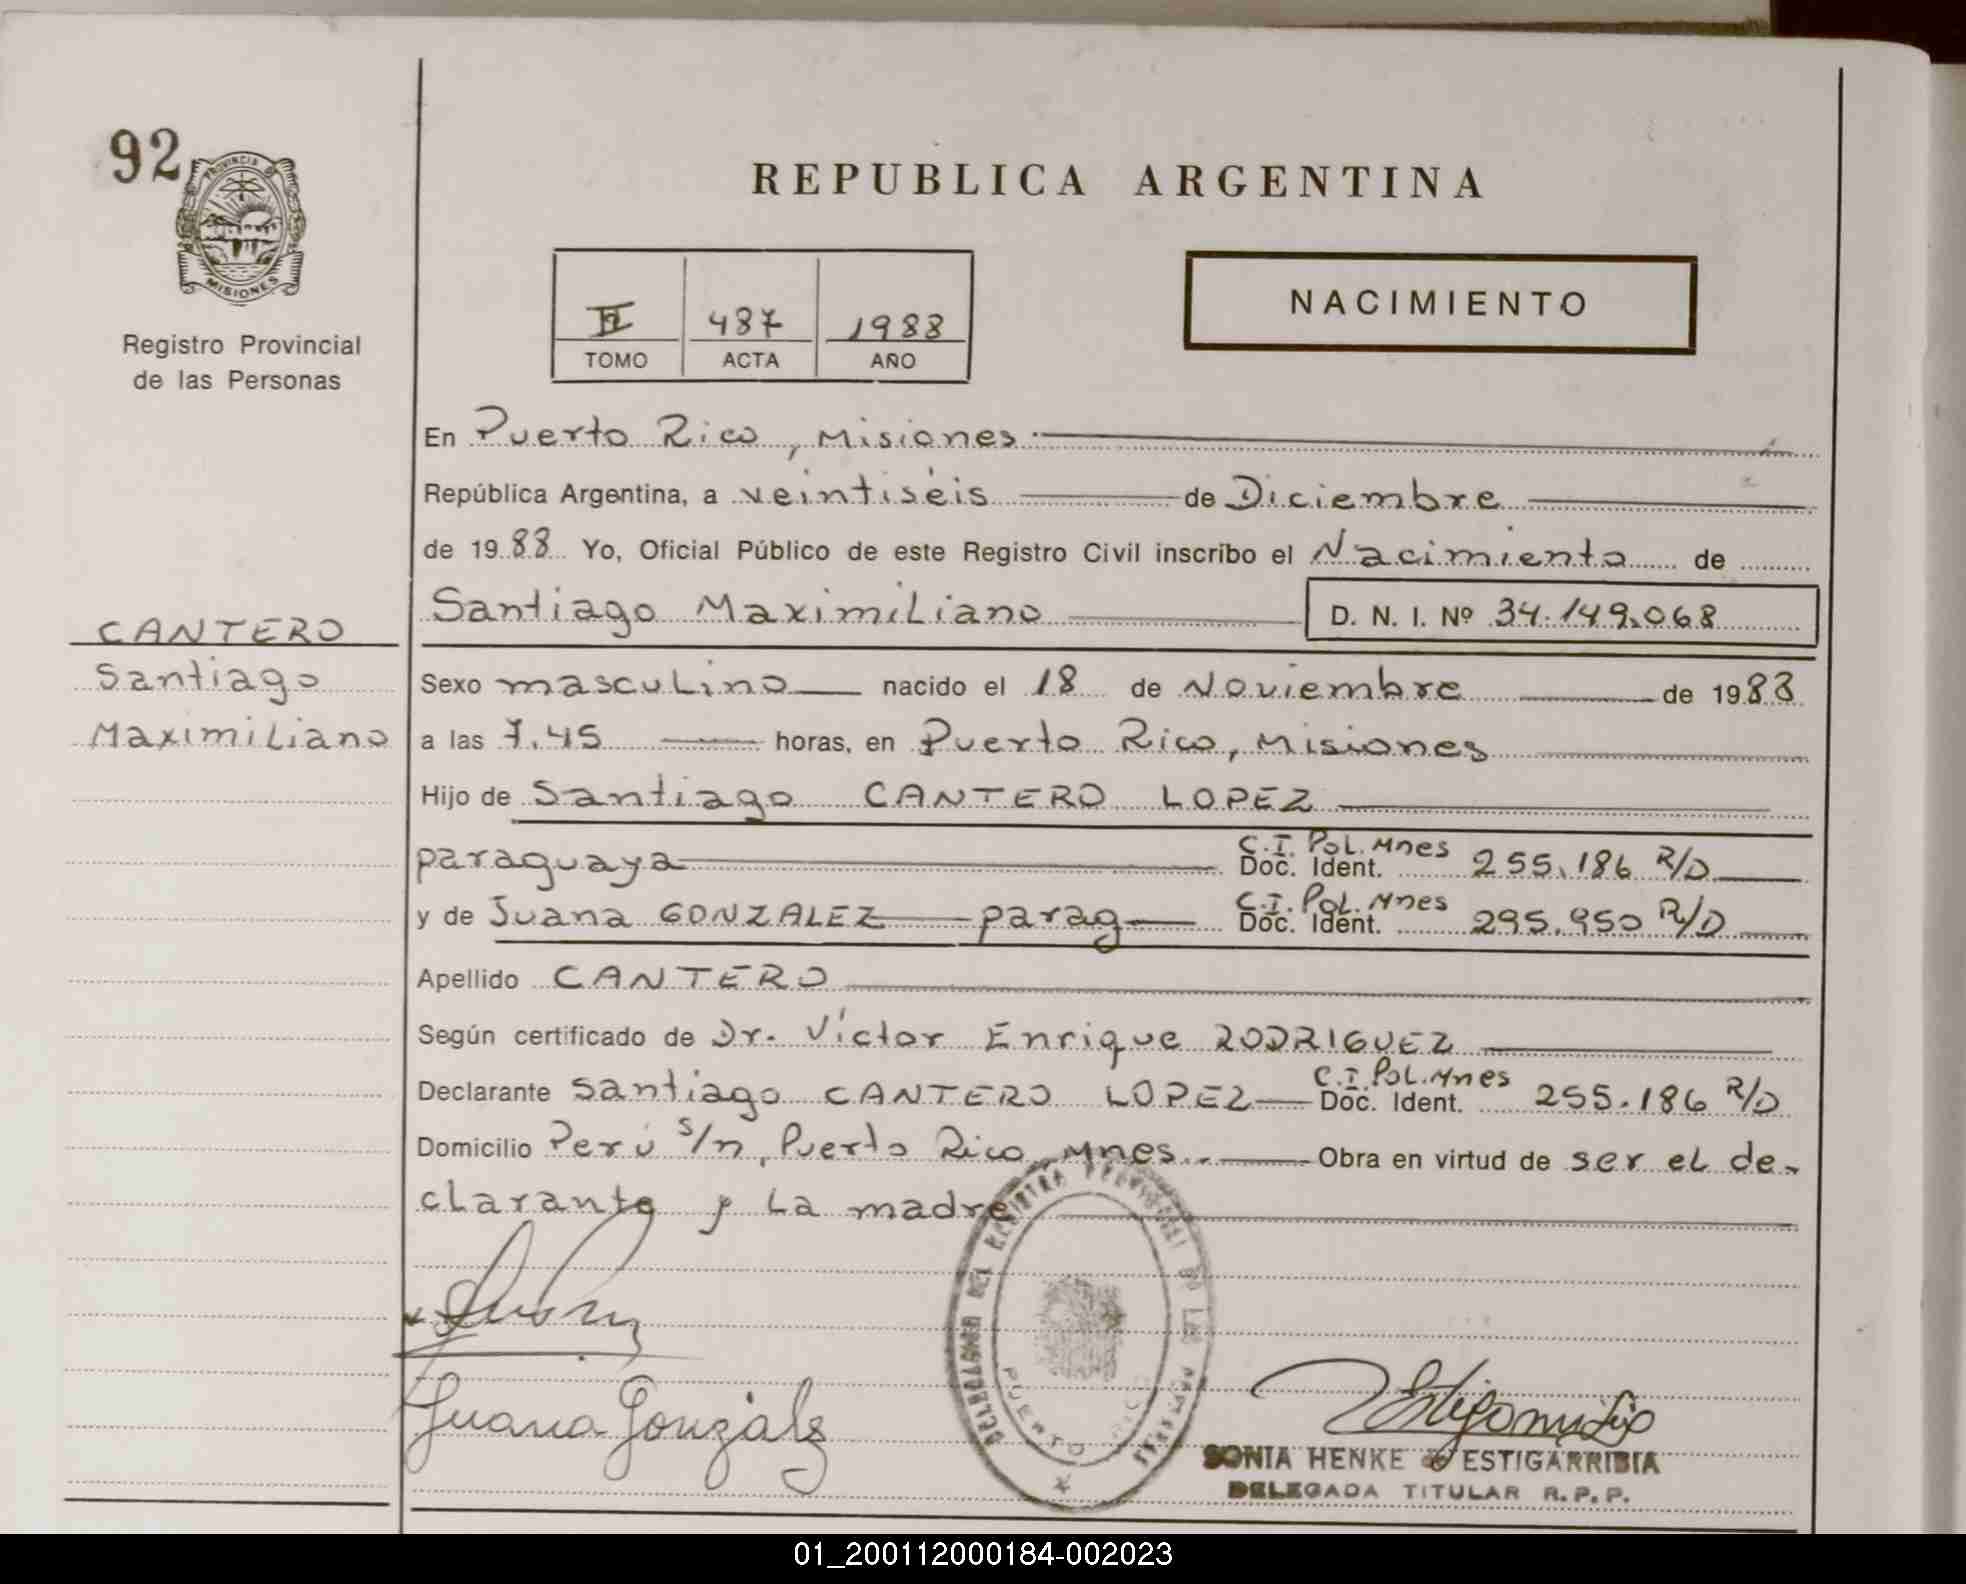 92
PROVINCIA DE
MISIONES
Registro Provincial
de las Personas
REPUBLICA ARGENTINA
II 487 1988
TOMO ACTA AÑO
NACIMIENTO
En Puerto Rico, Misiones
República Argentina, a veintiséis de Diciembre
de 1988 Yo, Oficial Público de este Registro Civil inscribo el Nacimiento de
Santiago Maximiliano D. N. I. Nº 34.149.068
CANTERO
Santiago
Maximiliano
Sexo masculino nacido el 18 de Noviembre de 1988
a las 7.45 horas, en Puerto Rico, Misiones
Hijo de Santiago CANTERO LOPEZ
paraguaya C.I. Pol. Mnes Doc. Ident. 255.186 R/D
y de Juana GONZALEZ parag C.I. Pol. Mnes Doc. Ident. 295.950 R/D
Apellido CANTERO
Según certificado de Dr. Víctor Enrique RODRIGUEZ
Declarante Santiago CANTERO LOPEZ C.I. Pol. Mnes Doc. Ident. 255.186 R/D
Domicilio Perú s/n, Puerto Rico, Mnes. Obra en virtud de ser el de-
clarante y la madre
DELEGACION DEL REGISTRO PROVINCIAL DE LAS PERSONAS
PUERTO RICO
Juana Gonzalez
SONIA HENKE de ESTIGARRIBIA
DELEGADA TITULAR R.P.P.
01_200112000184-002023